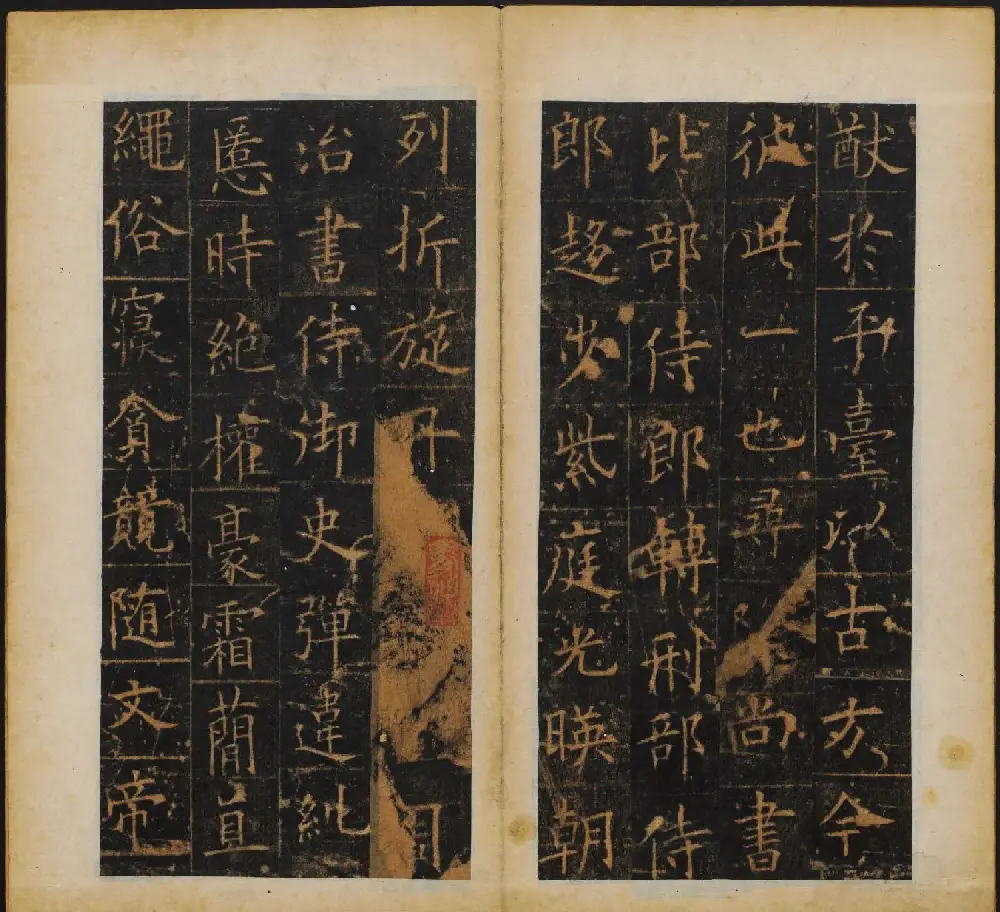 猷於平臺以古方今
彼此一也尋尚書
比部侍郎轉刑部侍
郎趍步紫庭光暎朝
列折旋丹
治書侍御史彈違糺
慝時絶權豪霜蕑直
繩俗寢貪競随文帝